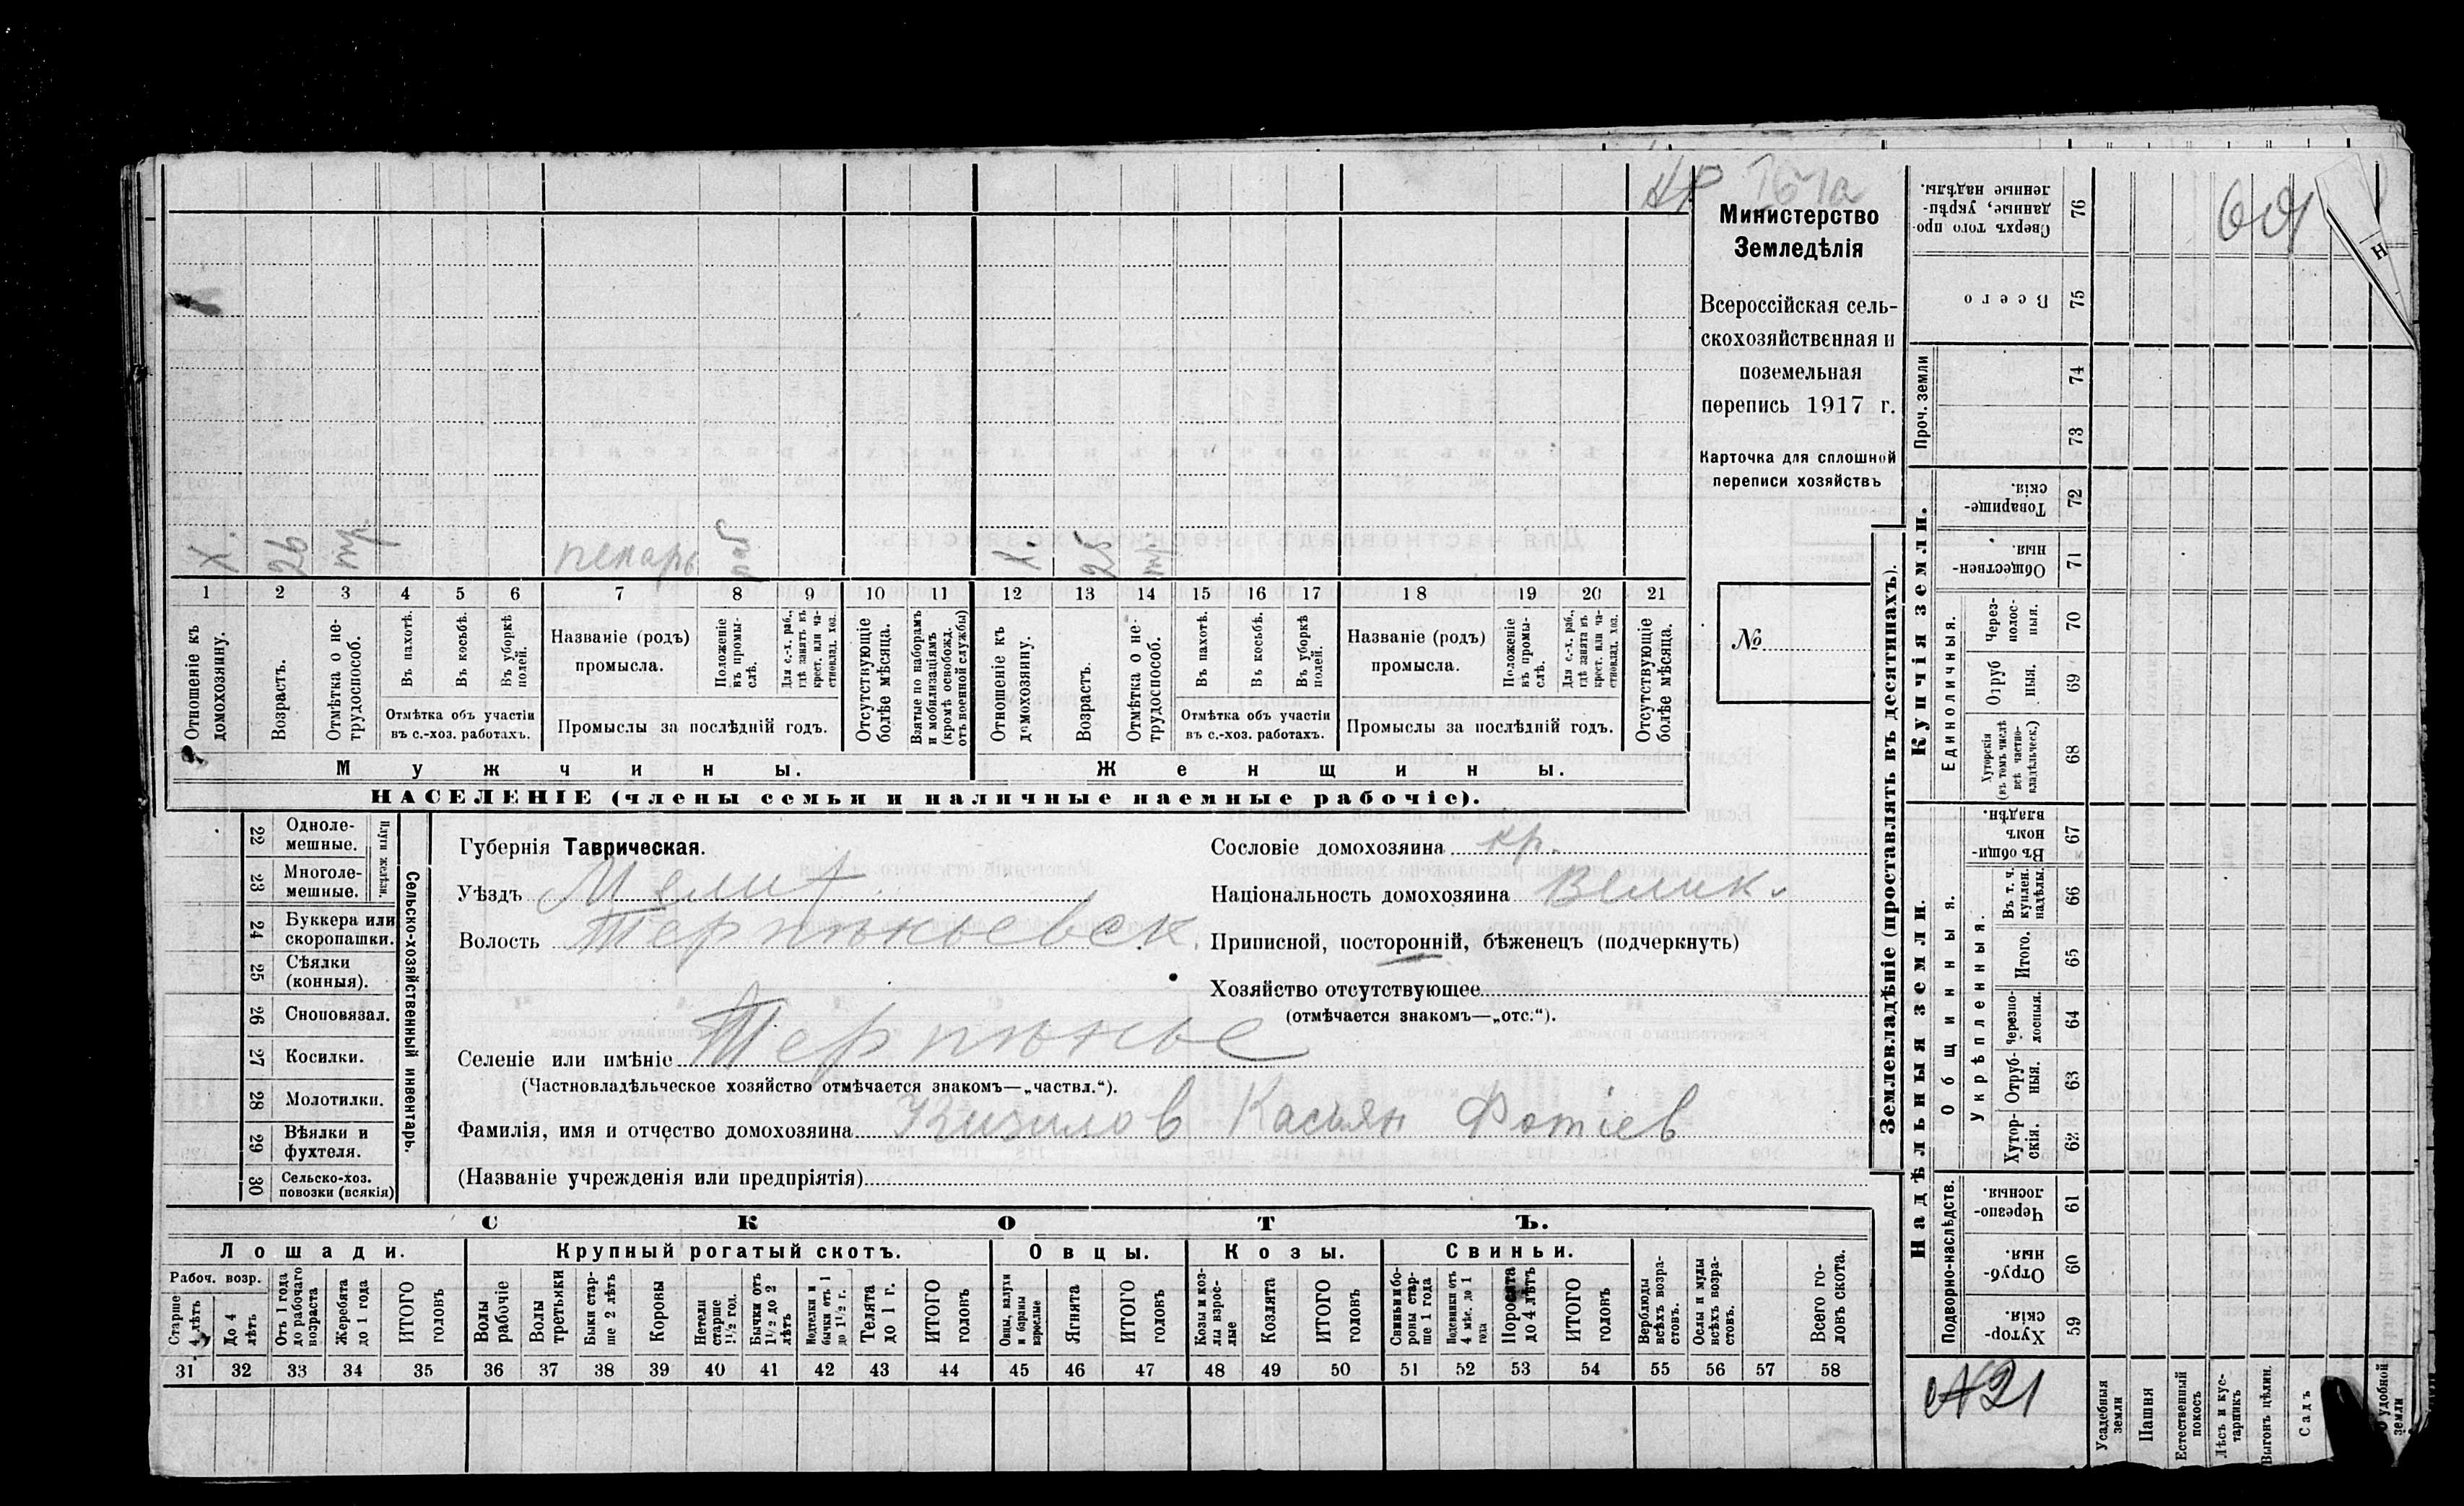 Министерство
Земледѣлія
Всероссійская сель-
скохозяйственная и
поземельная
перепись 1917 г.
Карточка для сплошной
переписи хозяйствъ
№
Х. 26 тр. пекарь раб Х. 25 тр.
1 2 3 4 5 6 7 8 9 10 11 12 13 14 15 16 17 18 19 20 21
Отношеніе къ домохозяину.
Возрастъ.
Отмѣтка о не-трудоспособ.
Въ пахотѣ.
Въ косьбѣ.
Въ уборкѣ полей.
Отмѣтка объ участіи
въ с.-хоз. работахъ.
Названіе (родъ)
промысла.
Положеніе въ промы-слѣ.
Для с.-х. раб., гдѣ занятъ въ крест. или ча-стновлад. хоз.
Промыслы за послѣдній годъ.
Отсутствующіе болѣе мѣсяца.
Взятые по наборамъ и мобилизаціямъ (кромѣ освобожд. отъ военной службы)
Отношеніе къ домохозяину.
Возрастъ.
Отмѣтка о не-трудоспособ.
Въ пахотѣ.
Въ косьбѣ.
Въ уборкѣ полей.
Отмѣтка объ участіи
въ с.-хоз. работахъ.
Названіе (родъ)
промысла.
Положеніе въ промы-слѣ.
Для с.-х. раб., гдѣ занята въ крест. или ча-стновлад. хоз.
Промыслы за послѣдній годъ.
Отсутствующіе болѣе мѣсяца.
Мужчины. Женщины.
НАСЕЛЕНІЕ (члены семьи и наличные наемные рабочіе).
22 Одноле-мешные.
23 Многоле-мешные.
Плуги желѣзн.
24 Буккера или скоропашки.
25 Сѣялки (конныя).
26 Сноповязал.
27 Косилки.
28 Молотилки.
29 Вѣялки и фухтеля.
30 Сельско-хоз. повозки (всякія)
Сельско-хозяйственный инвентарь.
Губернія Таврическая.
Уѣздъ Мелит.
Волость Терпѣньевск.
Селеніе или имѣніе Терпѣнье
(Частновладѣльческое хозяйство отмѣчается знакомъ—„частвл.“).
Фамилія, имя и отчество домохозяина Кизилов Касьян Фотіев
(Названіе учрежденія или предпріятія)
Сословіе домохозяина кр.
Національность домохозяина Велик.
Приписной, посторонній, бѣженецъ (подчеркнуть)
Хозяйство отсутствующее
(отмѣчается знакомъ—„отс.“).
СКОТЪ.
Лошади. Крупный рогатый скотъ. Овцы. Козы. Свиньи.
Рабоч. возр.
Старше 4 лѣтъ
До 4 лѣтъ
Отъ 1 года до рабочаго возраста
Жеребята до 1 года
ИТОГО головъ
Волы рабочіе
Волы третьяки
Быки стар-ше 2 лѣтъ
Коровы
Нетели старше 1½ год.
Бычки отъ 1½ до 2 лѣтъ
Подтелки и бычки отъ 1 до 1½ г.
Телята до 1 г.
ИТОГО головъ
Овцы, валухи и бараны взрослые
Ягнята
ИТОГО головъ
Козы и коз-лы взрос-лые
Козлята
ИТОГО головъ
Свиньи и бо-ровы стар-ше 1 года
Подсвинки отъ 4 мѣс. до 1 года
Поросята до 4 лѣтъ
ИТОГО головъ
Верблюды всѣхъ возра-стовъ.
Ослы и мулы всѣхъ возра-стовъ.
Всего го-ловъ скота.
31 32 33 34 35 36 37 38 39 40 41 42 43 44 45 46 47 48 49 50 51 52 53 54 55 56 57 58
Землевладѣніе (проставлять въ десятинахъ).
Сверхъ того про-данные, укрѣп-ленные надѣлы. 76
Всего 75
Проч. земли 74 73
Купчія земли.
Товарище-скія. 72
Обществен-ныя. 71
Единоличныя.
Через-полос-ныя. 70
Отруб-ныя. 69
Хуторскія (въ томъ числѣ всѣ частно-владѣльческ.) 68
Надѣльныя земли.
Общинныя.
Въ общин-номъ владѣн. 67
Укрѣпленныя.
Въ т. ч. куплен. надѣлы. 66
Итого. 65
Черезпо-лосныя. 64
Отруб-ныя. 63
Хутор-скія. 62
Подворно-наслѣдств.
Черезпо-лосныя. 61
Отруб-ныя. 60
Хутор-скія. 59
№21
Усадебныя земли
Пашня
Естественный покосъ
Лѣсъ и кус-тарникъ
Выгонъ цѣлин.
Садъ
удобной земли